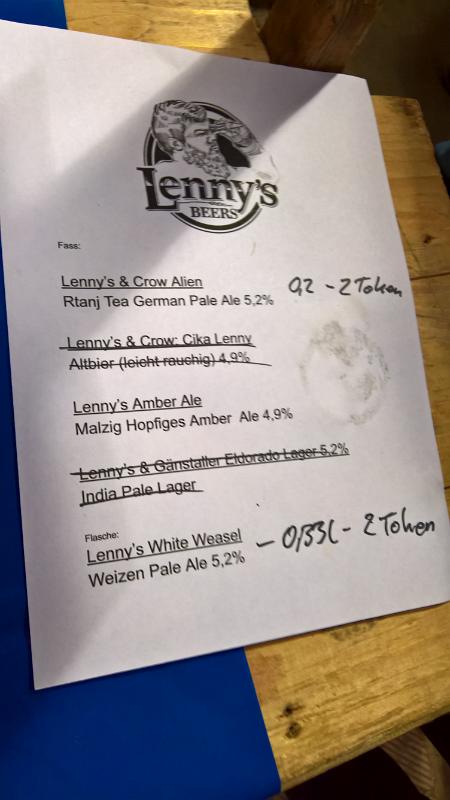 Lenny's
BEERS
Fass:
Lenny's & Crow Alien
Rtanj Tea German Pale Ale 5,2% 0,2 - 2 Token
Lenny's & Crow: Cika Lenny
Altbier (leicht rauchig) 4,9%
Lenny's Amber Ale
Malzig Hopfiges Amber Ale 4,9%
Lenny's & Gänstaller Eldorado Lager 5,2%
India Pale Lager
Flasche:
Lenny's White Weasel - 0,33l - 2 Token
Weizen Pale Ale 5,2%